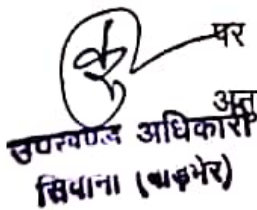 पर
अनु
उपखण्ड अधिकारी
सिवाना (बाड़मेर)